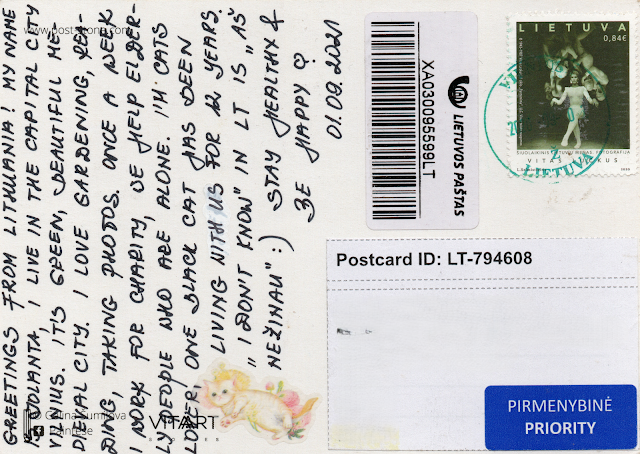 GREETINGS FROM LITHUANIA! MY NAME
IS JOLANTA, I LIVE IN THE CAPITAL CITY
VILNIUS. IT'S GREEN, BEAUTIFUL ME-
DIEVAL CITY. I LOVE GARDENING, REA-
DING, TAKING PHOTOS. ONCE A WEEK
I WORK FOR CHARITY, WE HELP ELDER-
LY PEOPLE WHO ARE ALONE. I'M CATS
LOVER, ONE BLACK CAT HAS BEEN
LIVING WITH US FOR 12 YEARS.
"I DON'T KNOW" IN LT IS „AŠ
NEŽINAU" :) STAY HEALTHY &
BE HAPPY
01.09.2021
VITART
XA030095599LT
LIETUVOS PAŠTAS
LIETUVA
0,84€
VITAS LUCKUS
LIETUVA
Postcard ID: LT-794608
PIRMENYBINĖ
PRIORITY